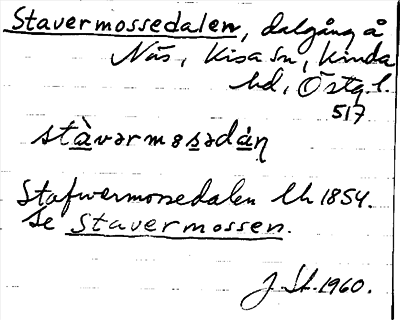 Stavermossedalen, dalgång å
Näs, Kisa sn, Kinda
hd, Östg. l.
517
stàvərmosədáɳ
Stafwermossedalen Lh 1854.
Se Stavermossen.
J. St. 1960.